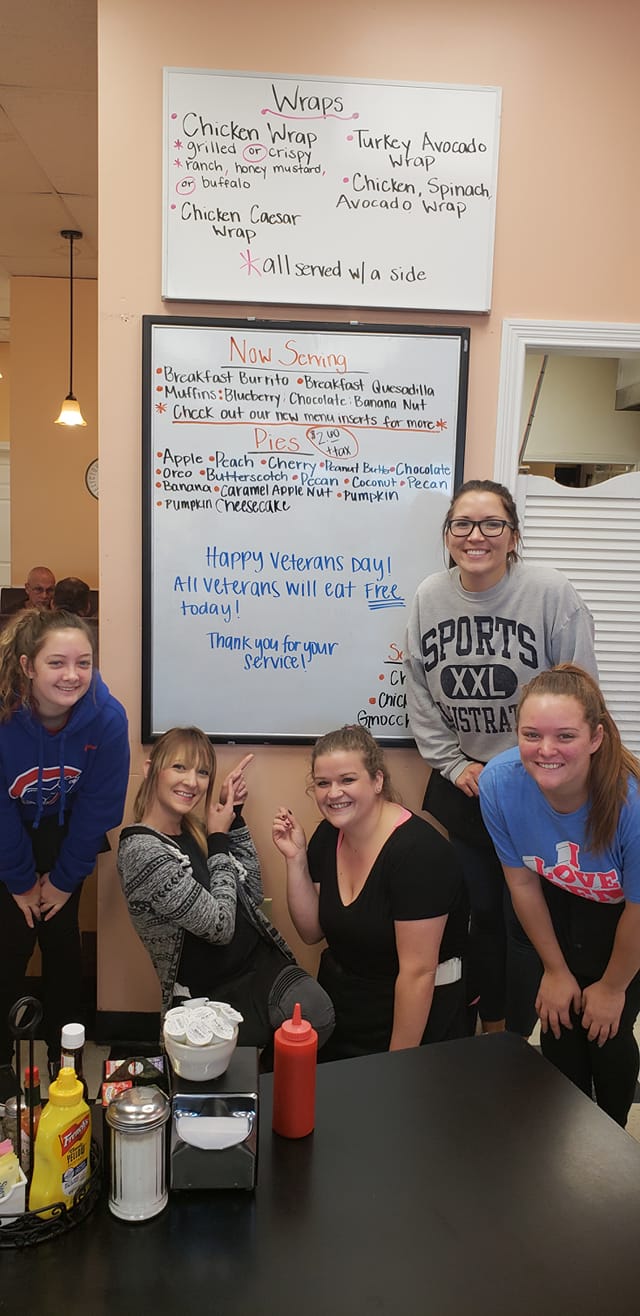 Wraps
• Chicken Wrap
* grilled or crispy
* ranch, honey mustard,
or buffalo
• Chicken Caesar
Wrap
• Turkey Avocado
Wrap
• Chicken, Spinach,
Avocado Wrap
* all served w/ a side
Now Serving
• Breakfast Burrito • Breakfast Quesadilla
• Muffins: Blueberry; Chocolate; Banana Nut
* Check out our new menu inserts for more *
Pies $2.00 + tax
• Apple • Peach • Cherry • Peanut Butter • Chocolate
• Oreo • Butterscotch • Pecan • Coconut • Pecan
• Banana • Caramel Apple Nut • Pumpkin
• Pumpkin Cheesecake
Happy Veterans Day!
All Veterans will eat Free
today!
Thank you for your
service!
SPORTS
XXL
I
LOVE
French's
YELLOW